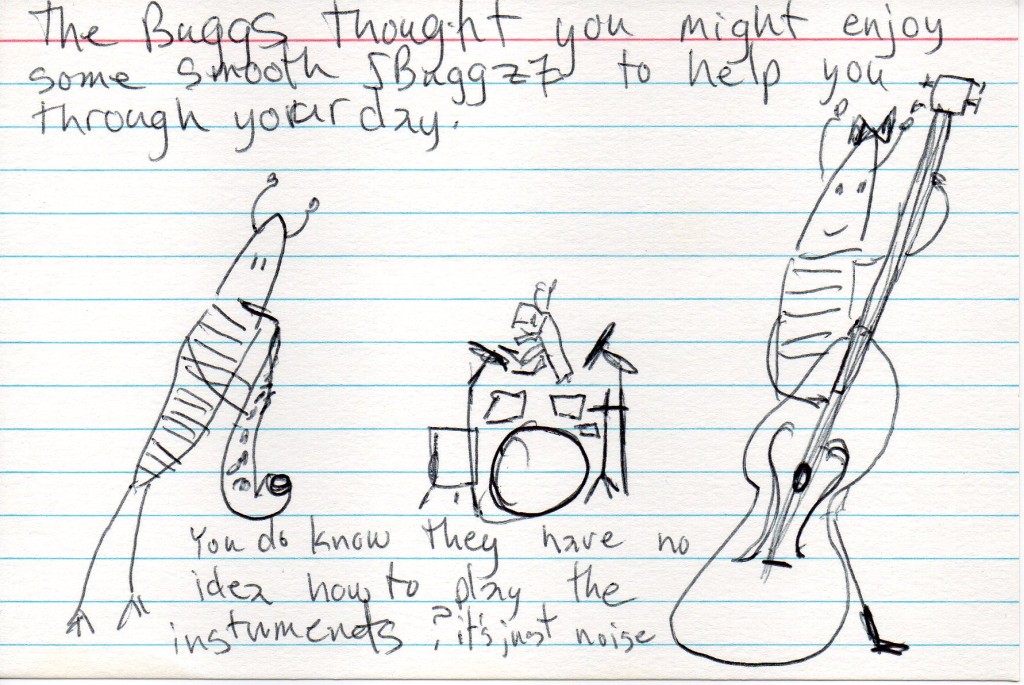 The Buggs thought you might enjoy
some smooth ♪Buggzz to help you
through your day.
You do know they have no
idea how to play the
instuments ? it's just noise